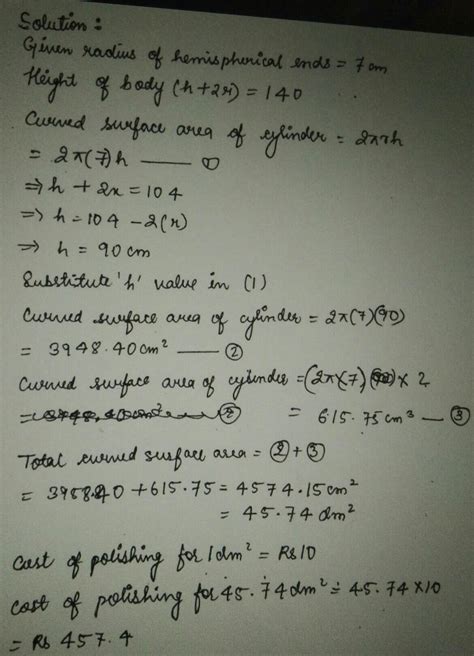 Solution :
Given radius of hemispherical ends = 7 cm
Height of body (h+2r) = 140
Curved surface area of cylinder = 2πrh
= 2π(7)h —— ①
⇒ h + 2x = 104
⇒ h = 104 - 2(r)
⇒ h = 90 cm
Substitute 'h' value in (1)
Curved surface area of cylinder = 2π(7)(90)
= 3948.40 cm² —— ②
Curved surface area of cylinder = (2π×(7) × 2
= 615.75 cm³ — ③
Total curved surface area = ② + ③
= 3958.40 + 615.75 = 4574.15 cm²
= 45.74 dm²
Cost of polishing for 1 dm² = Rs 10
Cost of polishing for 45.74 dm² = 45.74 × 10
= Rs 457.4